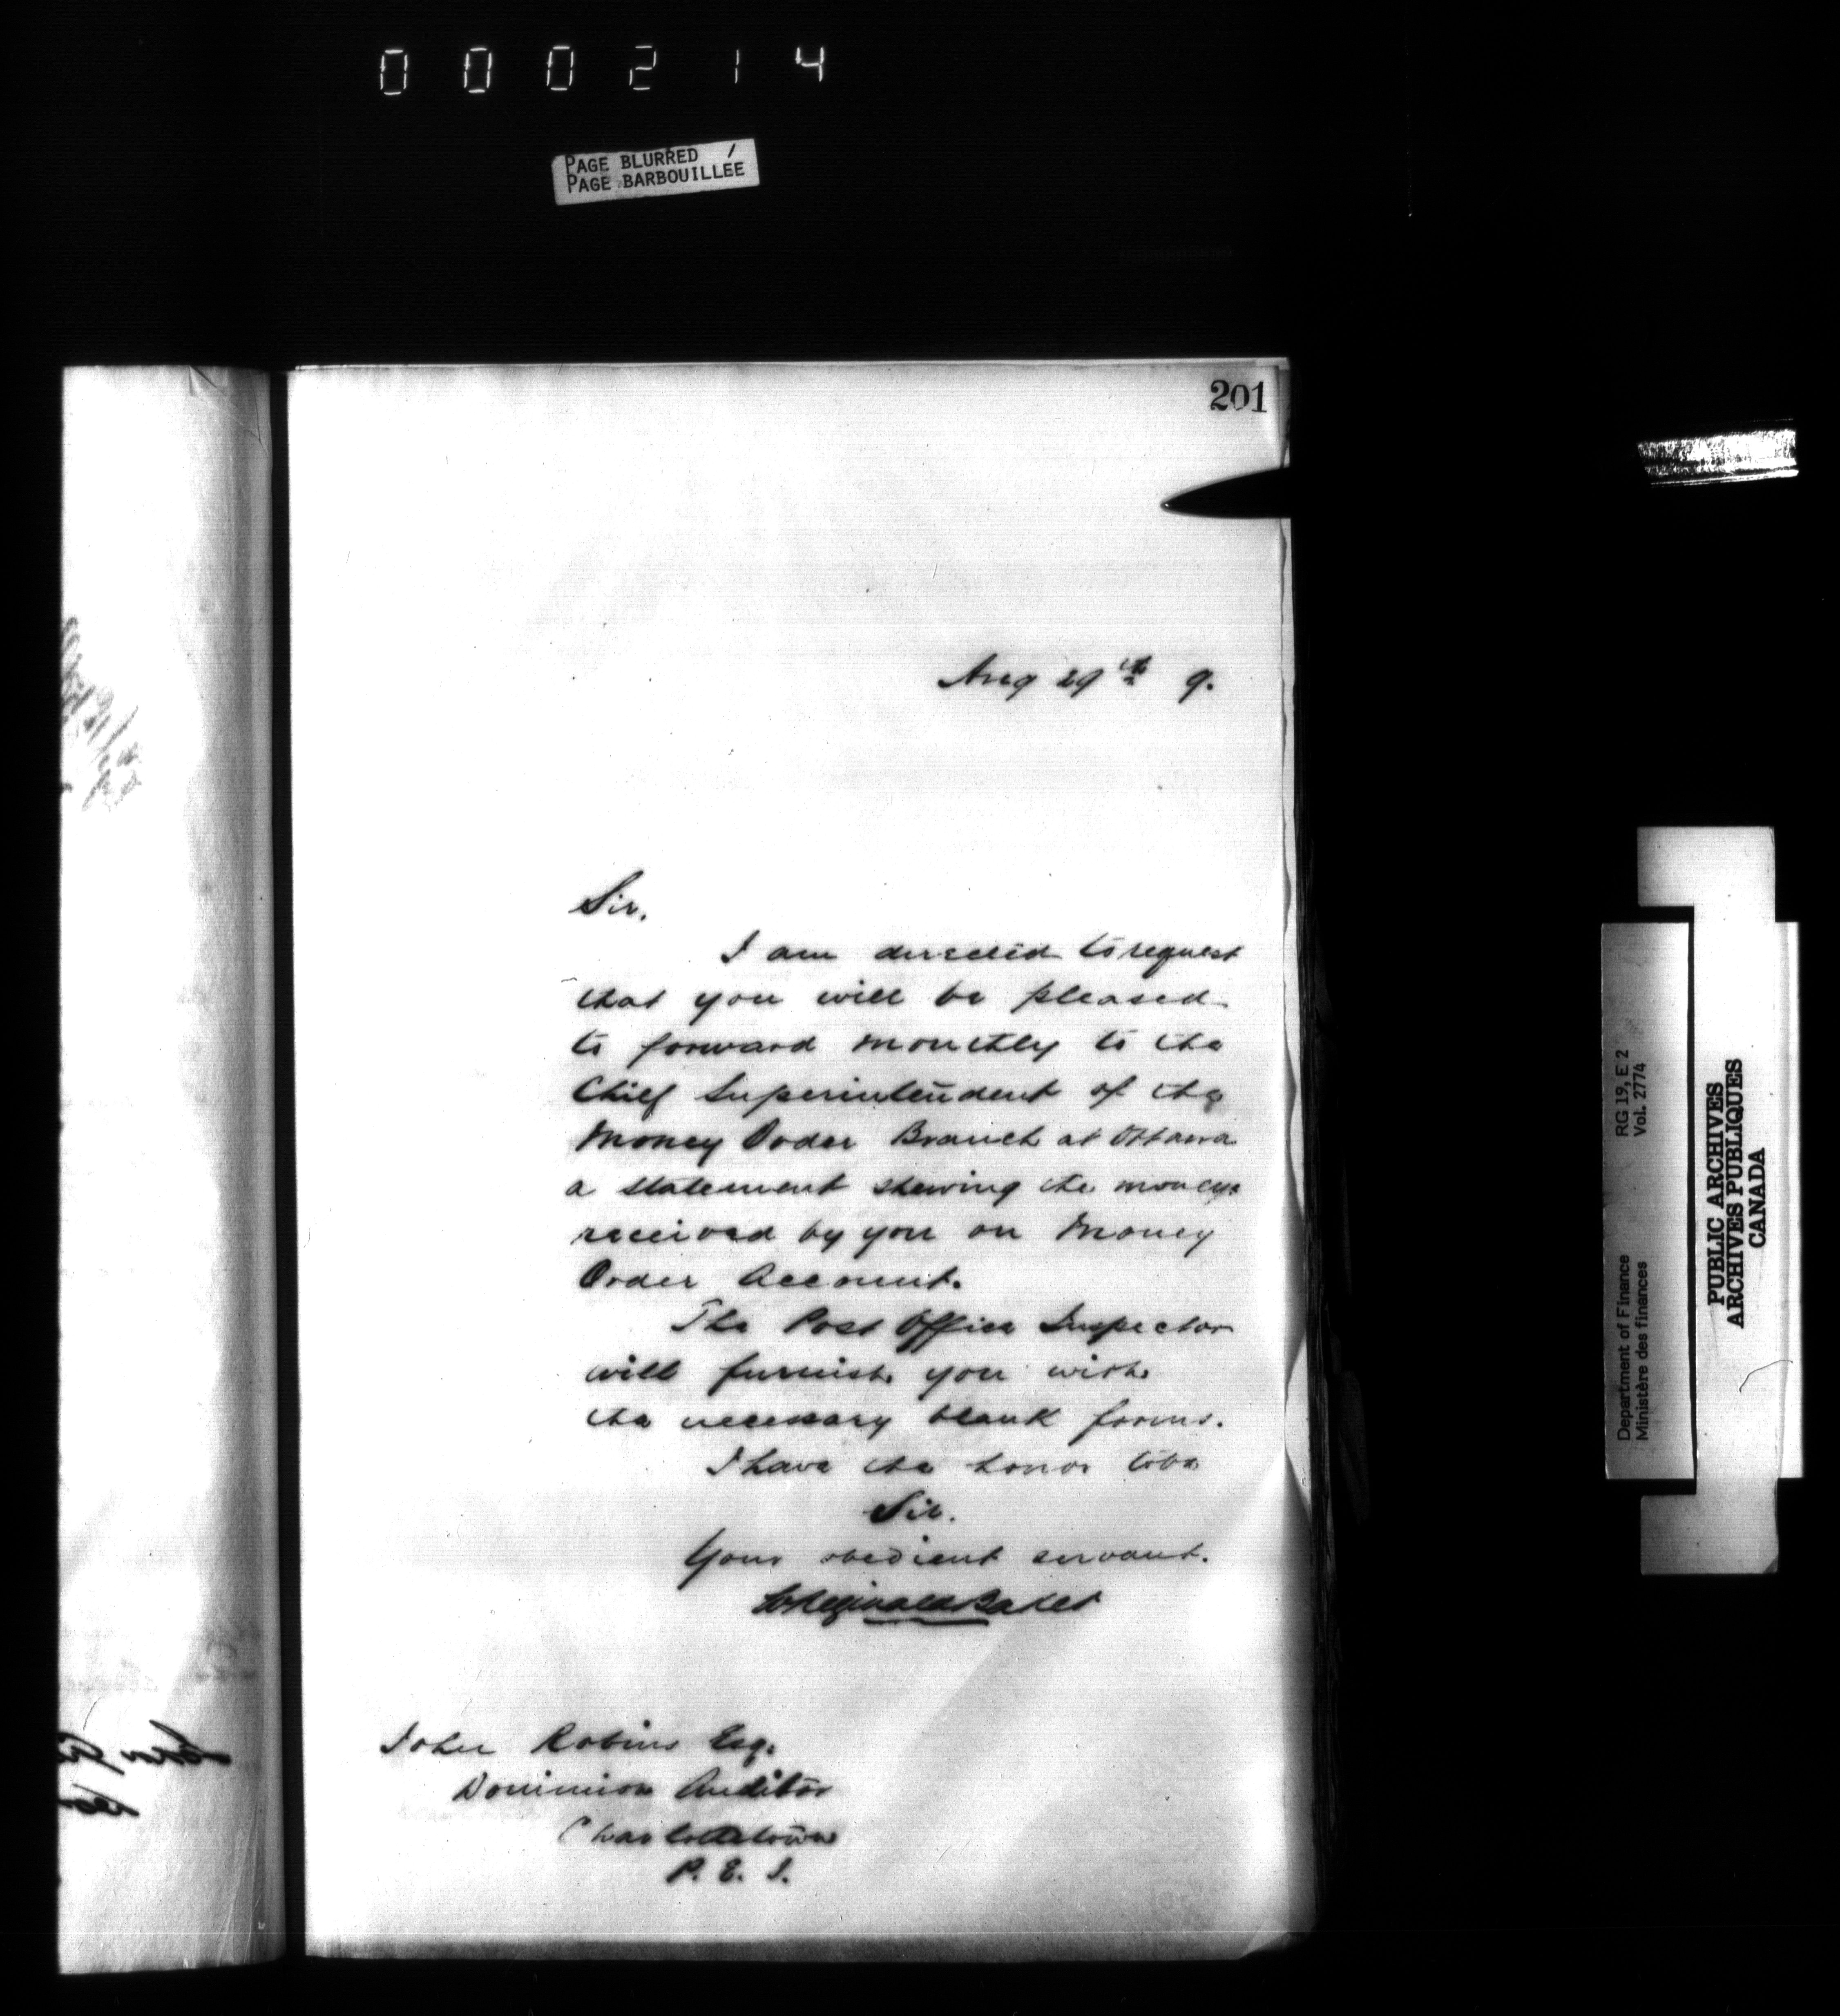 000214
PAGE BLURRED /
PAGE BARBOUILLÉE
201
Aug 29th 9.
Sir,
I am directed to request
that you will be pleased
to forward monthly to the
Chief Superintendent of the
Money Order Branch at Ottawa
a statement shewing the moneys
received by you on Money
Order Account.
The Post Office Inspector
will furnish you with
the necessary blank forms.
I have the honor to be
Sir.
Your obedient servant.
Reginald Baker
John Robins Esq.
Dominion Auditor
Charlottetown
P. E. I.
Department of Finance RG 19, E 2
Ministère des finances Vol. 2774
PUBLIC ARCHIVES
ARCHIVES PUBLIQUES
CANADA